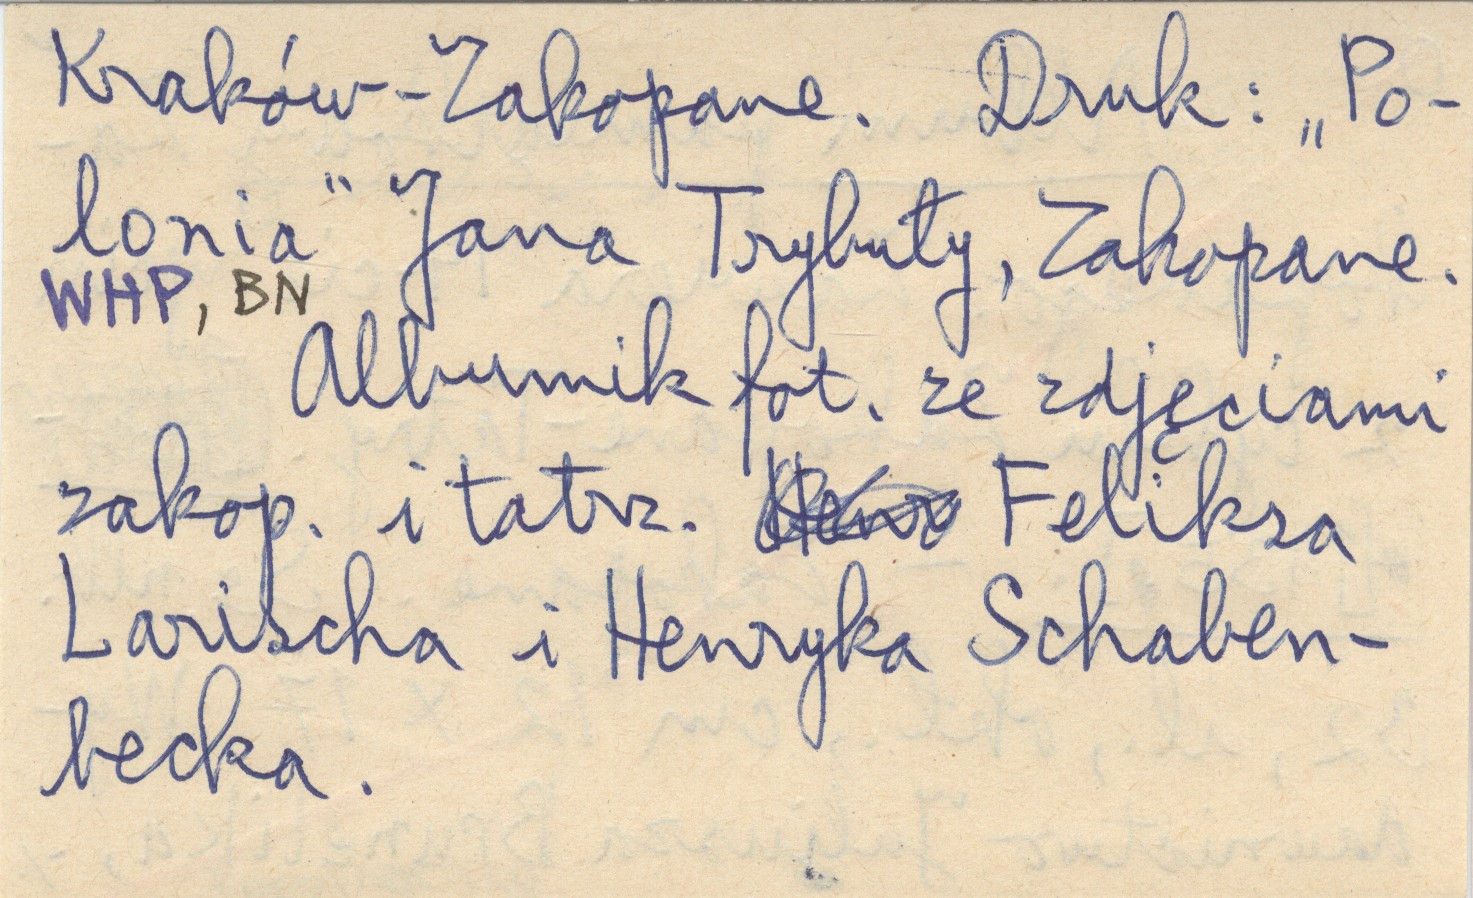 Kraków-Zakopane. Druk: „Po-
lonia" Jana Trybuły, Zakopane.
WHP, BN
Albumik fot. ze zdjęciami
zakop. i tatrz. Feliksa
Larischa i Henryka Schaben-
becka.